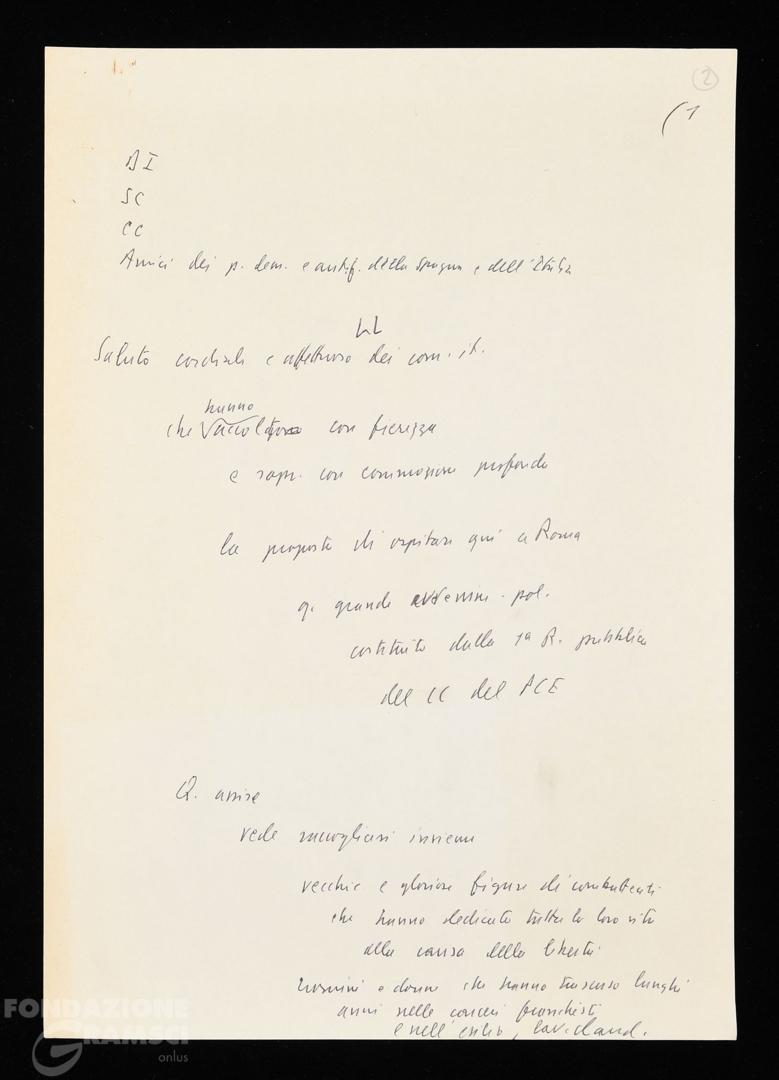 2
(1
DI
SC
CC
Amici dei p. dem. e antif. della Spagna e dell'Italia
Saluto cordiale e affettuoso dei com. it.
hunno
che accolto con fierezza
e con commozione profonda
la proposta di ospitare qui a Roma
q. grande avvenim. pol.
costituito dalla 1a R. pubblica
del CC del PCE
Q. assise
vede raccogliersi insieme
vecchie e gloriose figure di combattenti
che hanno dedicato tutta la loro vita
alla causa della libertà
uomini e donne che hanno trascorso lunghi
anni nelle carceri franchiste
e nell'esilio, cland.
FONDAZIONE
GRAMSCI
onlus